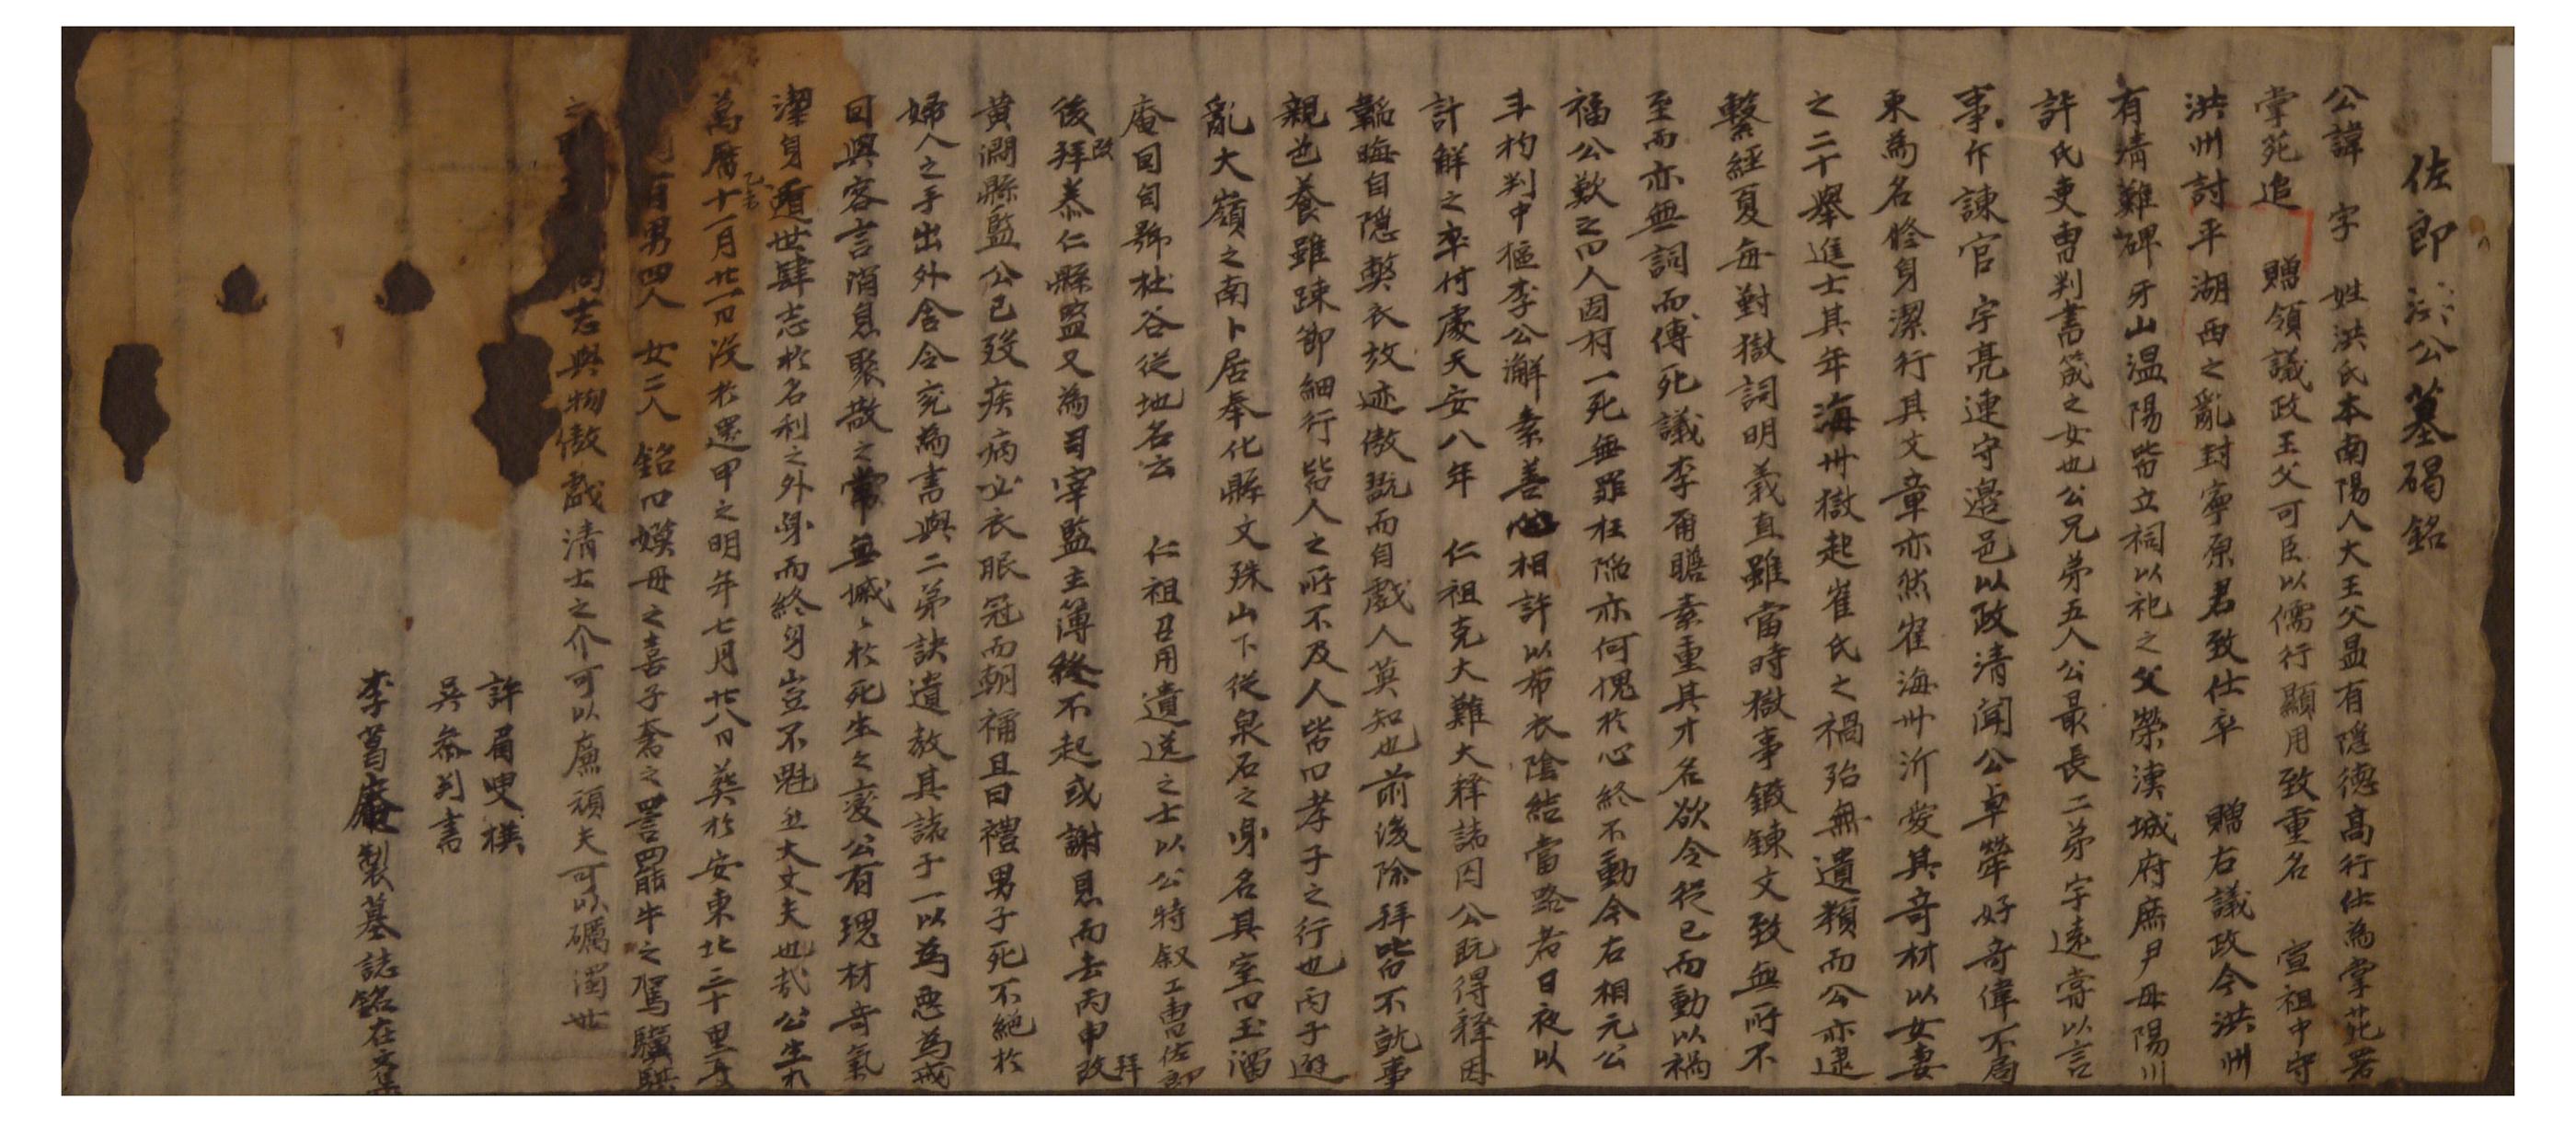 佐郎洪公墓碣銘
公諱 字 姓洪氏本南陽人大王父昷有隱德高行仕為掌苑署
掌苑追 贈領議政王父可臣以儒行顯用致重名 宣祖中守
洪州討平湖西之亂封寧原君致仕卒 贈右議政今洪州
有清難碑牙山溫陽皆立祠以祀之父榮漢城府庶尹母陽川
許氏吏曹判書筬之女也公兄弟五人公最長二弟宇遠嘗以言
事作諫官宇亮連守邊邑以政清聞公卓犖好奇偉不局
束為名修身潔行其文章亦然崔海州沂愛其奇材以女妻
之二十舉進士其年海州獄起崔氏之禍殆無遺類而公亦逮
繫經夏每對獄詞明義直雖當時獄事鍛鍊文致無所不
至而亦無詞而傅死議李爾瞻素重其才名欲令從己而動以禍
福公歎之曰人固有一死無罪枉陷亦何愧於心終不動今右相元公
斗杓判中樞李公澥素善相許以布衣陰結當路者日夜以
計解之卒付處天安八年 仁祖克大難大釋諸囚公既得釋因
韜晦自隱獘衣放迹傲翫而自戲人莫知也前後除拜皆不就事
親也養雖踈節細行皆人之所不及人皆曰孝子之行也丙子避
亂大嶺之南卜居奉化縣文殊山下從泉石之身名其室曰玉溜
庵自號杜谷從地名云 仁祖召用遺逸之士以公特叙工曹佐郎
後改拜泰仁縣監又為司宰監主簿終不起或謝恩而去丙申改拜
黃澗縣監公已歿疾病必衣服冠而朝補且曰禮男子死不絕於
婦人之手出外舍令兗為書與二弟訣遺敎其諸子一以為惡為戒
因與客言消息聚散之常無慽慽於死生之變公有瑰材奇氣
潔身遁世肆志於名利之外身而終身豈不魁然大丈夫也哉公生於
萬曆十一月廿一日沒於還甲之明年七月廿八日葬於安東北三十里
有男四人 女二人 銘曰嫫母之喜子奢之詈罷牛之駕驥
尚志與物傲戲清士之介可以廉頑夫可以礪濁世
許眉叟撰
吳參判書
李葛庵製墓誌銘在文集